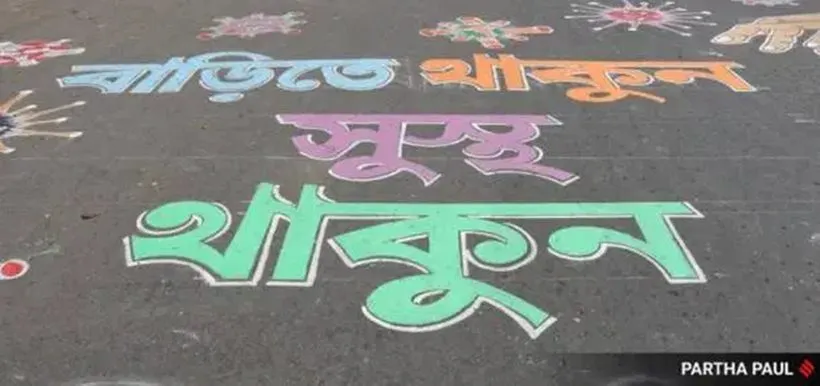 বাড়িতে থাকুন
সুস্থ
থাকুন
PARTHA PAUL